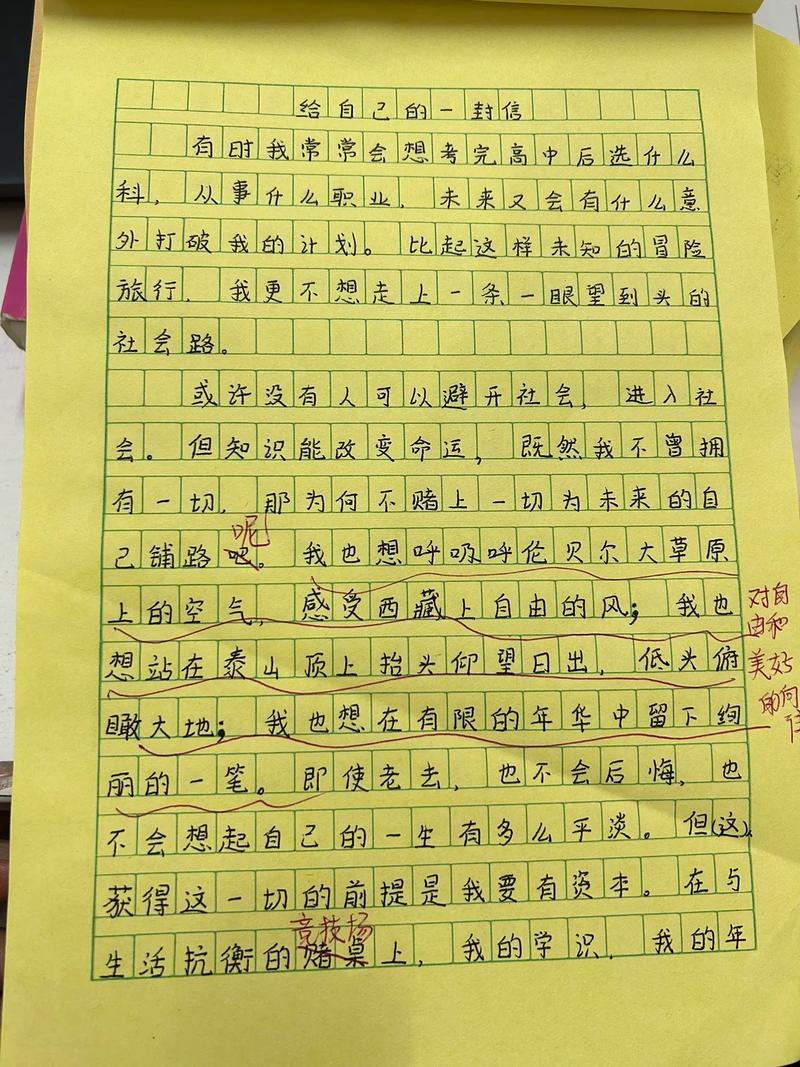 给自己的一封信
有时我常常会想考完高中后选什么
科，从事什么职业，未来又会有什么意
外打破我的计划。比起这样未知的冒险
旅行，我更不想走上一条一眼望到头的
社会路。
或许没有人可以避开社会，进入社
会。但知识能改变命运，既然我不曾拥
有一切，那为何不赌上一切为未来的自
呢
己铺路吧。我也想呼吸呼伦贝尔大草原
上的空气，感受西藏上自由的风；我也
想站在泰山顶上抬头仰望日出，低头俯
瞰大地；我也想在有限的年华中留下绚
丽的一笔。即使老去，也不会后悔，也
不会想起自己的一生有多么平淡。但(这)
获得这一切的前提是我要有资本。在与
竞技场
生活抗衡的赌桌上，我的学识，我的年
对自
由和
美好
的向